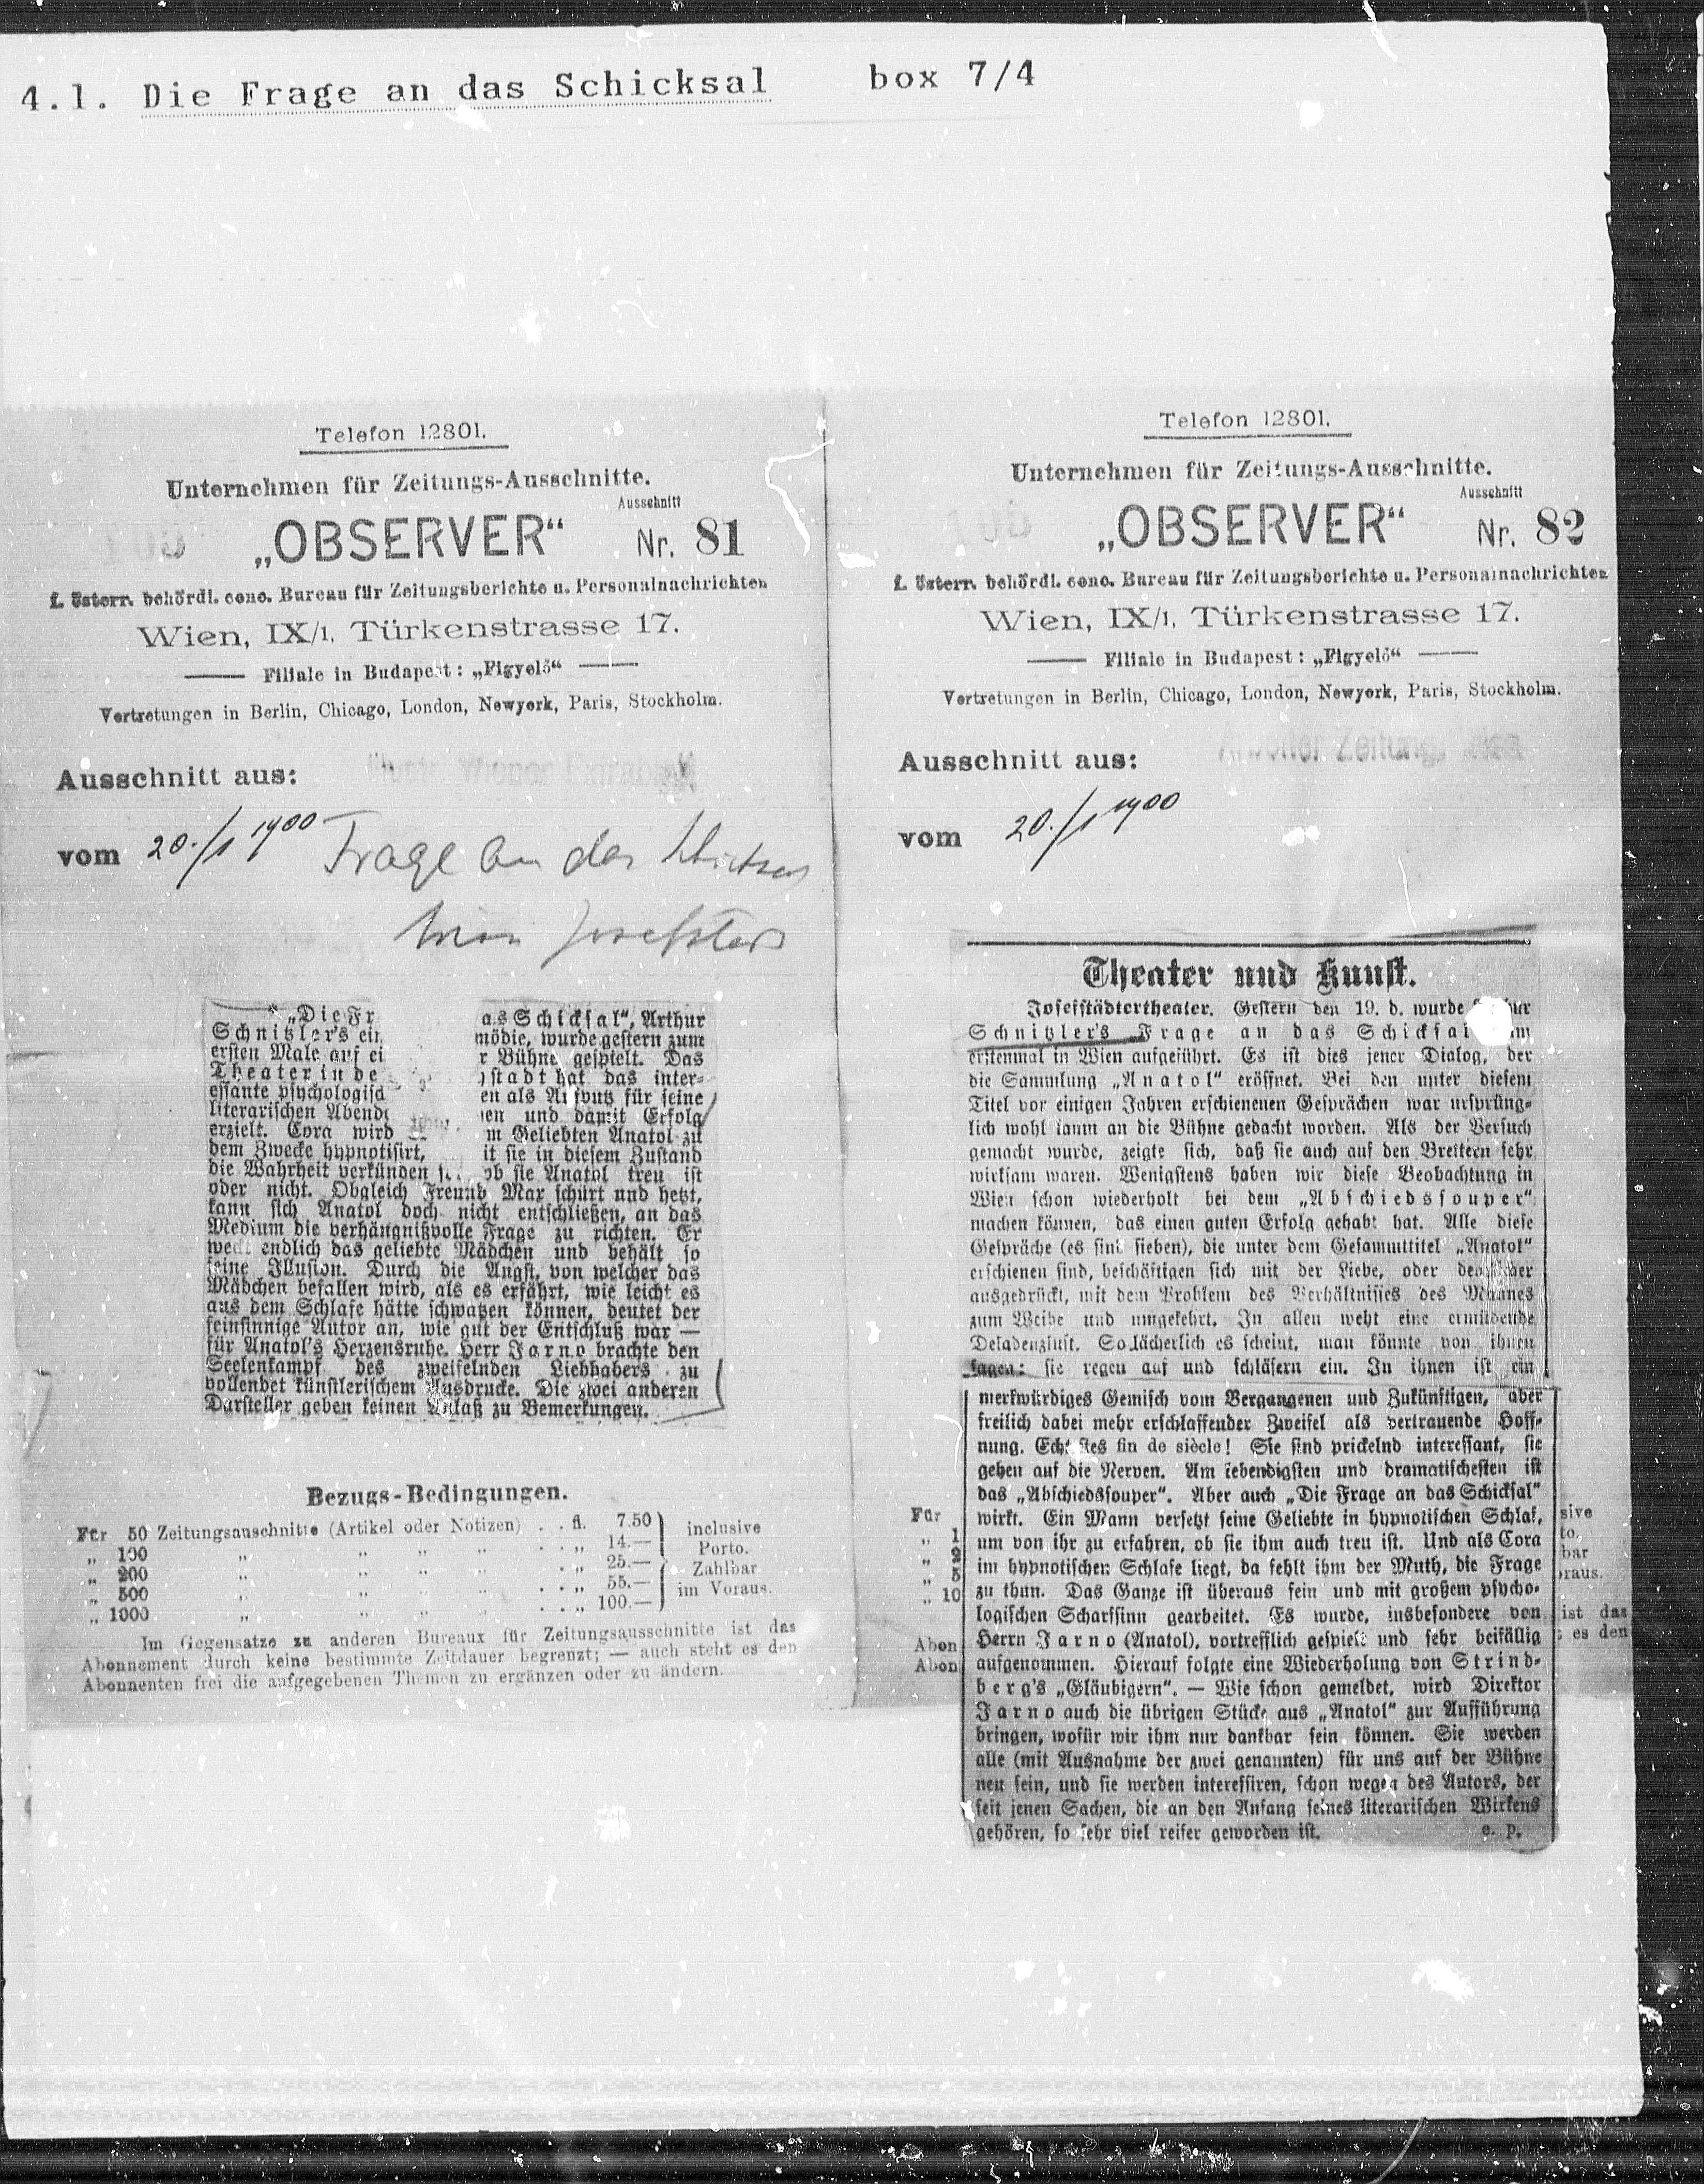 4.1. Die Frage an das Schicksal box 7/4
Telefon 12801.
Unternehmen für Zeitungs-Ausschnitte.
Ausschnitt
„OBSERVER“ Nr. 81
I. österr. behördl. conc. Bureau für Zeitungsberichte u. Personalnachrichten
Wien, IX/1, Türkenstrasse 17.
Filiale in Budapest: „Figyelő“
Vertretungen in Berlin, Chicago, London, Newyork, Paris, Stockholm.
Ausschnitt aus: Illustr. Wiener Extrablatt
vom 20./1 1900 Frage an das Schicksal
Wien Josefstadt
* „Die Fr as Schicksal“, Arthur
Schnitzler's ein mödie, wurde gestern zum
ersten Male auf ei r Bühne gespielt. Das
Theater in de stadt hat das inter-
essante psychologisch en als Aufputz für seine
literarischen Abende en und damit Erfolg
erzielt. Cora wird m Geliebten Anatol zu
dem Zwecke hypnotisirt, it sie in diesem Zustand
die Wahrheit verkünden ob sie Anatol treu ist
oder nicht. Obgleich Freund Max schürt und hetzt,
kann sich Anatol doch nicht entschließen, an das
Medium die verhängnißvolle Frage zu richten. Er
weckt endlich das geliebte Mädchen und behält so
seine Illusion. Durch die Angst, von welcher das
Mädchen befallen wird, als es erfährt, wie leicht es
aus dem Schlafe hätte schwatzen können, deutet der
feinsinnige Autor an, wie gut der Entschluß war —
für Anatol's Herzensruhe. Herr Jarno brachte den
Seelenkampf des zweifelnden Liebhabers zu
vollendet künstlerischem Ausdrucke. Die zwei anderen
Darsteller geben keinen Anlaß zu Bemerkungen.
Bezugs-Bedingungen.
Für 50 Zeitungsauschnitte (Artikel oder Notizen) . . fl. 7.50 inclusive
„ 100 „ „ „ „ . . „ 14.— Porto.
„ 200 „ „ „ „ . . „ 25.— Zahlbar
„ 500 „ „ „ „ . . „ 55.— im Voraus.
„ 1000 „ „ „ „ . . „ 100.—
Im Gegensatze zu anderen Bureaux für Zeitungsausschnitte ist das
Abonnement durch keine bestimmte Zeitdauer begrenzt; — auch steht es den
Abonnenten frei die aufgegebenen Themen zu ergänzen oder zu ändern.
Telefon 12801.
Unternehmen für Zeitungs-Ausschnitte.
Ausschnitt
„OBSERVER“ Nr. 82
I. österr. behördl. conc. Bureau für Zeitungsberichte u. Personalnachrichten
Wien, IX/1, Türkenstrasse 17.
Filiale in Budapest: „Figyelő“
Vertretungen in Berlin, Chicago, London, Newyork, Paris, Stockholm.
Ausschnitt aus: Arbeiter Zeitung, Wien
vom 20./1 1900
Theater und Kunst.
Josefstädtertheater. Gestern den 19. d. wurde ur
Schnitzler's „Frage an das Schicksal zum
erstenmal in Wien aufgeführt. Es ist dies jener Dialog, der
die Sammlung „Anatol“ eröffnet. Bei den unter diesem
Titel vor einigen Jahren erschienenen Gesprächen war ursprüng-
lich wohl kaum an die Bühne gedacht worden. Als der Versuch
gemacht wurde, zeigte sich, daß sie auch auf den Brettern sehr
wirksam waren. Wenigstens haben wir diese Beobachtung in
Wien schon wiederholt bei dem „Abschiedssouper“
machen können, das einen guten Erfolg gehabt hat. Alle diese
Gespräche (es sind sieben), die unter dem Gesammttitel „Anatol“
erschienen sind, beschäftigen sich mit der Liebe, oder
ausgedrückt, mit dem Problem des Verhältnisses des Mannes
zum Weibe und umgekehrt. In allen weht eine ermüdende
Dekadenzluft. So lächerlich es scheint, man könnte von ihnen
sagen: sie regen auf und schläfern ein. In ihnen ist ein
merkwürdiges Gemisch vom Vergangenen und Zukünftigen, aber
freilich dabei mehr erschlaffender Zweifel als vertrauende Hoff-
nung. Echtestes fin de siècle! Sie sind prickelnd interessant, sie
gehen auf die Nerven. Am lebendigsten und dramatischesten ist
das „Abschiedssouper“. Aber auch „Die Frage an das Schicksal“
wirkt. Ein Mann versetzt seine Geliebte in hypnotischen Schlaf,
um von ihr zu erfahren, ob sie ihm auch treu ist. Und als Cora
im hypnotischen Schlafe liegt, da fehlt ihm der Muth, die Frage
zu thun. Das Ganze ist überaus fein und mit großem psycho-
logischen Scharfsinn gearbeitet. Es wurde, insbesondere von
Herrn Jarno (Anatol), vortrefflich gespielt und sehr beifällig
aufgenommen. Hierauf folgte eine Wiederholung von Strind-
berg's „Gläubigern“. — Wie schon gemeldet, wird Direktor
Jarno auch die übrigen Stücke aus „Anatol“ zur Aufführung
bringen, wofür wir ihm nur dankbar sein können. Sie werden
alle (mit Ausnahme der zwei genannten) für uns auf der Bühne
neu sein, und sie werden interessiren, schon wegen des Autors, der
seit jenen Sachen, die an den Anfang seines literarischen Wirkens
gehören, so sehr viel reifer geworden ist. e. p.
Für
„ 1
„ 2
„ 5
„ 10
Abon
Abon
sive
to.
bar
oraus.
ist das
es den